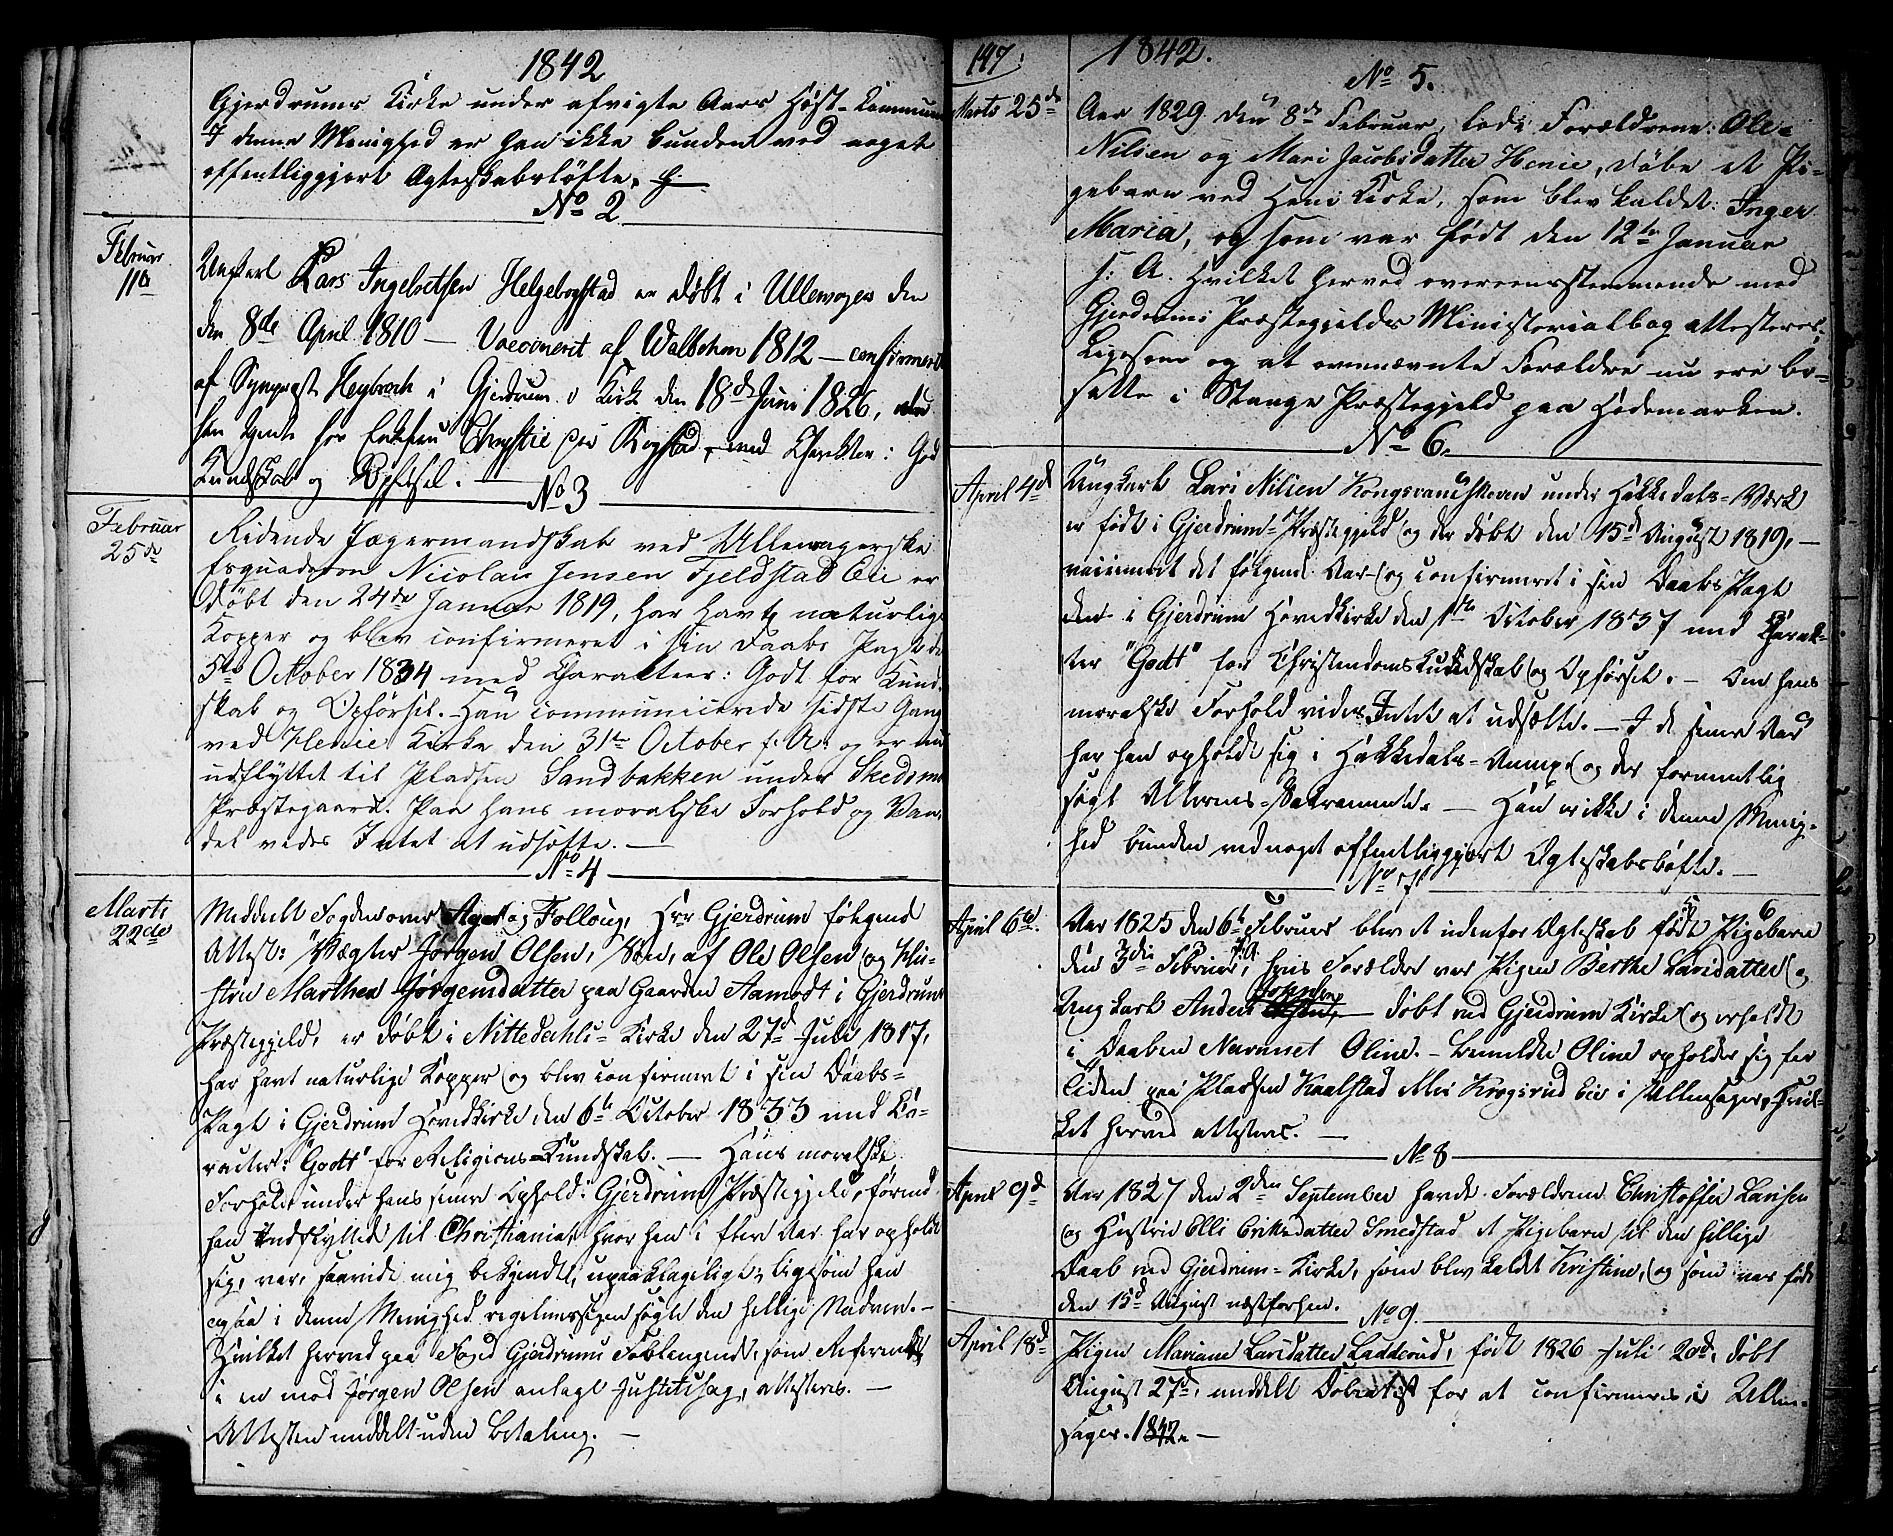 1842
Gjerdrums Kirke under afvigte Aars Høst-Commun
I denne Menighed er han ikke bunden ved noget
offentliggjort Ægteskabsløfte.
No 2
Februar
11te
Ungkarl Lars Ingebretsen Helgebogstad er døbt i Ullensager den
den 8de April 1810 — Vaccineret af Walbohm 1812 — confirmeret
af Sognepræst Heyboch i Gjerdrums Kirke den 18de Juni 1826,
for Christie paa Bogstad, med Charakter: God
Kundskab og Opførsel. —
No 3
Februar
25de
Ridende Jægermandskab ved Ullensagerske
Esquadron Nicolai Jensen Fjeldstad Eie er
døbt den 24de Januar 1819, har havt naturlige
Kopper og blev confirmeret i sin Daabs Pagt d.
5te October 1834 med Charakteer: Godt for Kund-
skab og Opførsel. Han communicerede sidste Gang
ved Henie Kirke den 31te October f: A: og er nu
udflyttet til Pladsen Sandbakken under Skedsmo
Præstegaard. Paa hans moralske Forhold og Van-
del vides Intet at udsætte. —
No 4
Marts
22de
Meddelt Fogden over Ager og Follough, Hrr Gjerdrum følgende
Attest: "Vægter Jørgen Olsen, Søn af Ole Olsen og Hu-
strue Marthea Jørgensdatter paa Gaarden Aamodt i Gjerdrums
Præstegjeld, er døbt i Nittedahls Kirke den 27de Juli 1817,
har havt naturlige Kopper og blev confirmeret i sin Daabs-
Pagt i Gjerdrum Hovedkirke den 6te October 1833 med Ca-
racter: "Godt" for Religions-Kundskab. — Hans moralske
Forhold under hans senere Ophold i Gjerdrum Præstegjeld, førend
han udflyttede til Christiania, hvor han i flere Aar har opholdt
sig, var, saavidt mig bekjendt, upaaklageligt; ligesom han
ogsaa i denne Menighed regelmæssigen søgte den hellige Nadver. —
Hvilket herved paa Foged Gjerdrums Forlangende, som Referent
i en mod Jørgen Olsen anlagt Justitssag, attesteres. —
Attesten meddelt uden Betaling. —
147.
1842.
No 5.
Marts 25de
Aar 1829 den 8de Februar, lode Forældrene: Ole
Nilsen og Mari Jacobsdatter Henie, døbe et Pi-
gebarn ved Heni Kirke, som blev kaldet: Inger
Maria, og som var født den 12te Januar
s: A. Hvilket herved overeensstemmende med
Gjerdrums Præstegjelds Ministerialbog attesteres.
Ligesom og at ovennævnte Forældre nu ere bo-
satte i Stange Præstegjeld paa Hedemarken.
No 6.
April 4de
Ungkarl Lars Nilsen Kongsvandshaven under Hakkedals-Værk
er født i Gjerdrum-Præstegjeld og der døbt den 15de August 1819, —
vaccineret det følgende Aar og confirmeret i sin Daabs Pagt
i Gjerdrum Hovedkirke den 1ste October 1837 med Charak-
ter "Godt" for Christendomskundskab og Opførsel. — Om hans
moralske Forhold vides Intet at udsætte. — I de senere Aar
har han opholdt sig i Hakkedals-Annex og der formentlig
søgt Alterens-Sacramente. — Han er ikke i denne Menig-
hed bunden ved noget offentliggjort Ægteskabsløfte. —
No 7
April 6te.
Aar 1825 den 6te Februar blev et udenfor Ægteskab født Pigebarn
den 3die Februar s: A:, hvis Forældre var Pigen Berthe Larsdatter og
Ungkarl Anders — døbt ved Gjerdrum Kirke og erholdt
i Daaben Navnet Oline. — Bemeldte Oline opholder sig for
Tiden paa Pladsen Kaalstad Krogsrud Eie i Ullensager, Hvil-
ket herved attesteres. —
No 8
April 9de
Aar 1827 den 2den September havde Forældrene Christoffer Larsen
og Hustrue Elli Eriksdatter Smedstad et Pigebarn til den hellige
Daab ved Gjerdrum-Kirke, som blev kaldet Kristine, og som var født
den 15de August næstforhen.
No 9.
April 18de
Pigen Mariane Larsdatter Ladderud, født 1826 Juli 20de, døbt
August 27de, meddelt Døbeattest for at confirmeres i Ullen-
sager. 1842. —